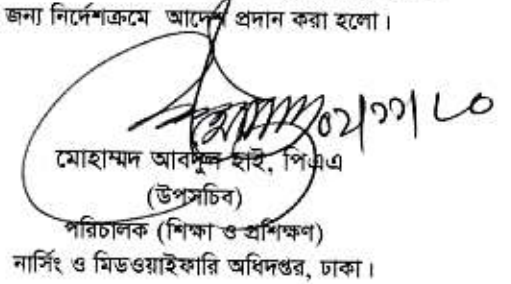 জন্য নির্দেশক্রমে আদেশ প্রদান করা হলো।
মোহাম্মদ আবদুল হাই, পিএএ
(উপসচিব)
পরিচালক (শিক্ষা ও প্রশিক্ষণ)
নার্সিং ও মিডওয়াইফারি অধিদপ্তর, ঢাকা।